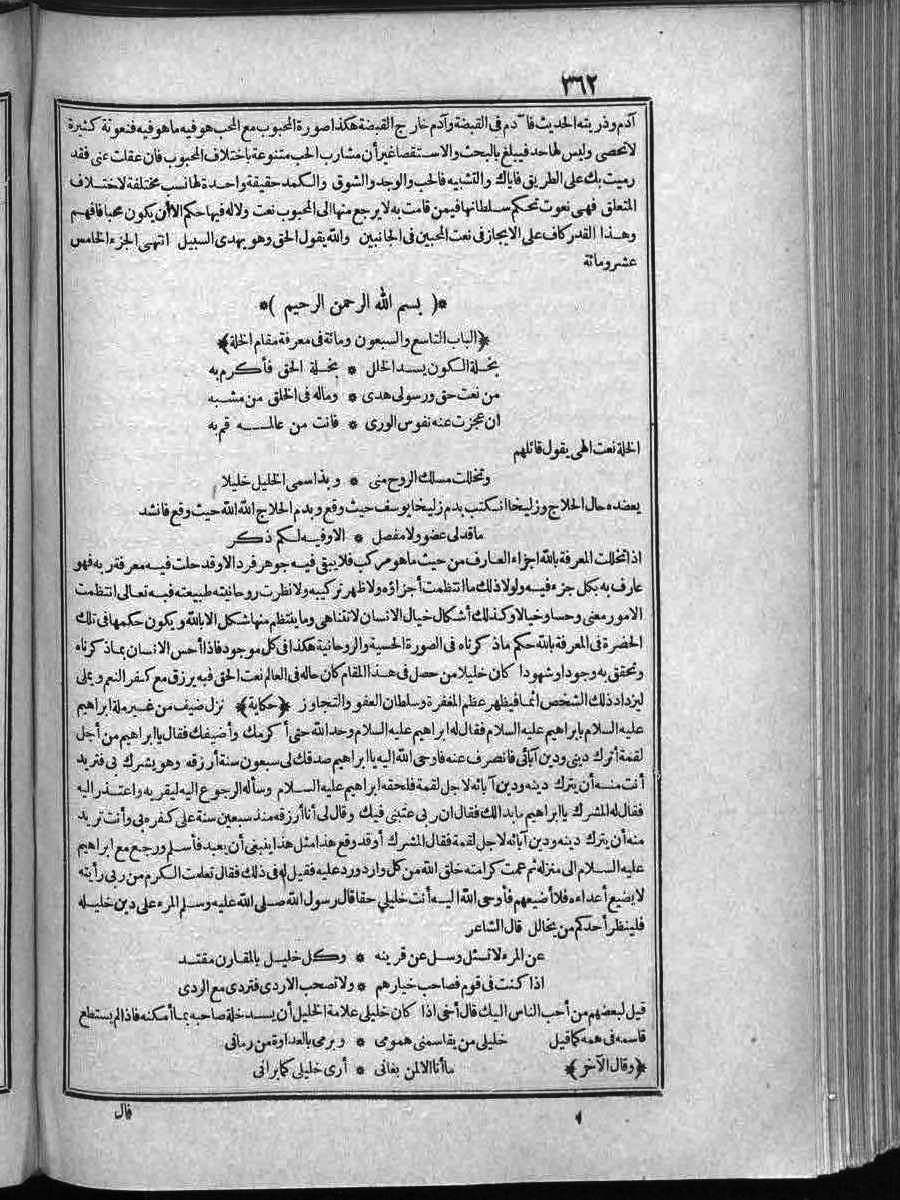 ٣٦٢
آدم وذريته الحديث فا دم فى القبضة وآدم خارج القبضة هكذا صورة المحبوب مع المحب هو فيه ما هو فيه فنعوته كثيرة
لا تحصى وليس لها حد فيبلغ بالبحث والاستقصا غير أن مشارب الحب متنوعة باختلاف المحبوب فان عقلت عنى فقد
رميت بك على الطريق فاياك والتشبيه فالحب والوجد والشوق والكمد حقيقة واحدة لها نسب مختلفة لاختلاف
المتعلق فهى نعوت تحكم سلطانها فيمن قامت به لا يرجع منها الى المحبوب نعت ولا له فيها حكم الا أن يكون محبا فافهم
وهذا القدر كاف على الايجاز فى نعت المحبين فى الجانبين والله يقول الحق وهو يهدى السبيل انتهى الجزء الخامس
عشر ومائة
*( بسم الله الرحمن الرحيم )*
﴿الباب التاسع والسبعون ومائة فى معرفة مقام الخلة﴾
بخلة الكون يسد الخلل * بخلة الحق فأكرم به
من نعت حق ورسولى هدى * وماله فى الخلق من مشبه
ان عجزت عنه نفوس الورى * فانت من عالمه قم به
الخلة نعت الهى يقول قائلهم
وتخللت مسلك الروح منى * وبذا سمى الخليل خليلا
يعضده حال الحلاج وزليخا انكتب بدم زليخا يوسف حيث وقع وبدم الحلاج الله الله حيث وقع فانشد
ما قد لى عضو ولا مفصل * الا وفيه لكم ذكر
اذا تخللت المعرفة بالله اجزاء العارف من حيث ما هو مركب فلا يبقى فيه جوهر فرد الا وقد حلت فيه معرفة ربه فهو
عارف به بكل جزء فيه ولولا ذلك ما انتظمت أجزاؤه ولا ظهر تركيبه ولا نظرت روحانيته طبيعته فبه تعالى انتظمت
الامور معنى وحسا وخيالا وكذلك أشكال خيال الانسان لا تتناهى وما ينتظم منها شكل الا بالله ويكون حكمها فى تلك
الحضرة فى المعرفة بالله حكم ماذكرناه فى الصورة الحسية والروحانية هكذا فى كل موجود فاذا أحس الانسان بماذكرناه
وتحقق به وجودا وشهودا كان خليلا من حصل فى هذا المقام كان حاله فى العالم نعت الحق فبه يرزق مع كفر النعم ويملى
ليزداد ذلك الشخص اثما فيظهر عظم المغفرة وسلطان العفو والتجاوز ﴿حكاية﴾ نزل ضيف من غير ملة ابراهيم
عليه السلام بابراهيم عليه السلام فقال له ابراهيم عليه السلام وحد الله حتى أكرمك وأضيفك فقال يا ابراهيم من أجل
لقمة أترك دينى ودين آبائى فانصرف عنه فاوحى الله اليه يا ابراهيم صدقك لى سبعون سنة أرزقه وهو يشرك بى فتريد
أنت منه أن يترك دينه ودين آبائه لاجل لقمة فلحقه ابراهيم عليه السلام وسأله الرجوع اليه ليقريه واعتذر اليه
فقال له المشرك يا ابراهيم ما بدا لك فقال ان ربى عتبنى فيك وقال لى أنا أرزقه منذ سبعين سنة على كفره بى وأنت تريد
منه أن يترك دينه ودين آبائه لاجل لقمة فقال المشرك أوقد وقع هذا مثل هذا ينبغى أن يعبد فأسلم ورجع مع ابراهيم
عليه السلام الى منزله ثم عمت كرامته خلق الله من كل وارد ورد عليه فقيل له فى ذلك فقال تعلمت الكرم من ربى رأيته
لا يضيع أعداءه فلا أضيعهم فأوحى الله اليه أنت خليلي حقا قال رسول الله صلى الله عليه وسلم المرء على دين خليله
فلينظر أحدكم من يخالل قال الشاعر
عن المرء لا تسئل وسل عن قرينه * وكل خليل بالمقارن مقتد
اذا كنت فى قوم فصاحب خيارهم * ولا تصحب الاردى فتردى مع الردى
قيل لبعضهم من أحب الناس اليك قال أخى اذا كان خليلى علامة الخليل أن يسد خلة صاحبه بما أمكنه فاذا لم يستطع
قاسمه فى همه كما قيل خليلى من يقاسمنى همومى * ويرمى بالعداوة من رمانى
﴿وقال الآخر﴾ ما أنا الا لمن بغانى * أرى خليلى كما يرانى
قال